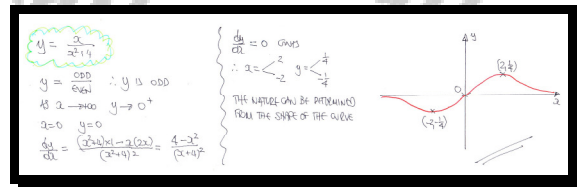 y = x/(x²+4)
y = ODD/EVEN ∴ y IS ODD
AS x → +∞ y → 0⁺
x=0 y=0
dy/dx = ((x²+4)×1 − x(2x))/(x²+4)² = (4−x²)/(x+4)²
dy/dx = 0 GIVES
∴ x = < 2 −2 y = < 1/4 −1/4
THE NATURE CAN BE DETERMINED
FROM THE SHAPE OF THE CURVE
y
(2,1/4)
O
x
(−2,−1/4)